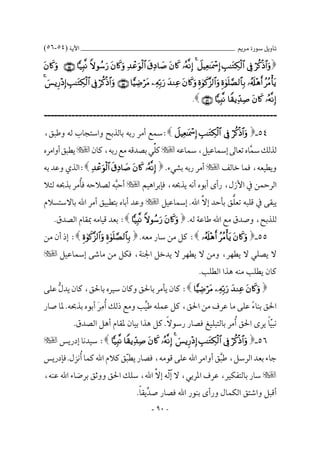 تأويل سورة مريم الآية (٥٤-٥٦)
﴿ وَاذْكُرْ فِي الْكِتَابِ إِسْمَاعِيلَ إِنَّهُ كَانَ صَادِقَ الْوَعْدِ وَكَانَ رَسُولًا نَبِيًّا وَكَانَ
يَأْمُرُ أَهْلَهُ بِالصَّلَاةِ وَالزَّكَاةِ وَكَانَ عِنْدَ رَبِّهِ مَرْضِيًّا وَاذْكُرْ فِي الْكِتَابِ إِدْرِيسَ
إِنَّهُ كَانَ صِدِّيقًا نَبِيًّا ﴾.
٥٤- ﴿ وَاذْكُرْ فِي الْكِتَابِ إِسْمَاعِيلَ ﴾: سمع أمر ربه بالذبح واستجاب له وطبق،
لذلك سمَّاه تعالى إسماعيل، سماعه كلِّي بصدقه مع ربه، كان يطبق أوامره
ويطيعه، فما خالف أمر ربه بشيء. ﴿ إِنَّهُ كَانَ صَادِقَ الْوَعْدِ ﴾: الذي وعد به
الرحمن في الأزل، رأى أبوه أنه يذبحه، فإبراهيم أحبَّه لصلاحه فأُمر بذبحه لئلا
يبقى في قلبه تعلُّق بأحد إلَّا الله. إسماعيل وعد أباه بتطبيق أمر الله بالاستسلام
للذبح، وصدق مع الله طاعة له. ﴿ وَكَانَ رَسُولًا نَبِيًّا ﴾: بعد قيامه بمقام الصدق.
٥٥- ﴿ وَكَانَ يَأْمُرُ أَهْلَهُ ﴾: كل من سار معه. ﴿ بِالصَّلَاةِ وَالزَّكَاةِ ﴾: إذ أن من
لا يصلي لا يطهر، ومن لا يطهر لا يدخل الجنة، فكل من ماشى إسماعيل
كان يطلب منه هذا الطلب.
﴿ وَكَانَ عِنْدَ رَبِّهِ مَرْضِيًّا ﴾: كان يأمر بالحق وكان سيره بالحق، كان يدلُّ على
الحق بناءً على ما عرف من الحق، كل عمله طيِّب ومع ذلك أُمرَ أبوه بذبحه. لما صار
نبيّاً يرى الحق أُمر بالتبليغ فصار رسولاً. كل هذا بيان لمقام أهل الصدق.
٥٦- ﴿ وَاذْكُرْ فِي الْكِتَابِ إِدْرِيسَ إِنَّهُ كَانَ صِدِّيقًا نَبِيًّا ﴾: سيدنا إدريس
جاء بعد الرسل، طبَّق أوامر الله على قومه، فصار يطبِّق كلام الله كما أُنزل. فإدريس
سار بالتفكير، عرف المربي، لا إله إلَّا الله، سلك الحق ووثق برضاء الله عنه،
أقبل واشتق الكمال ورأى بنور الله فصار صدِّيقاً.
- ٩٠ -